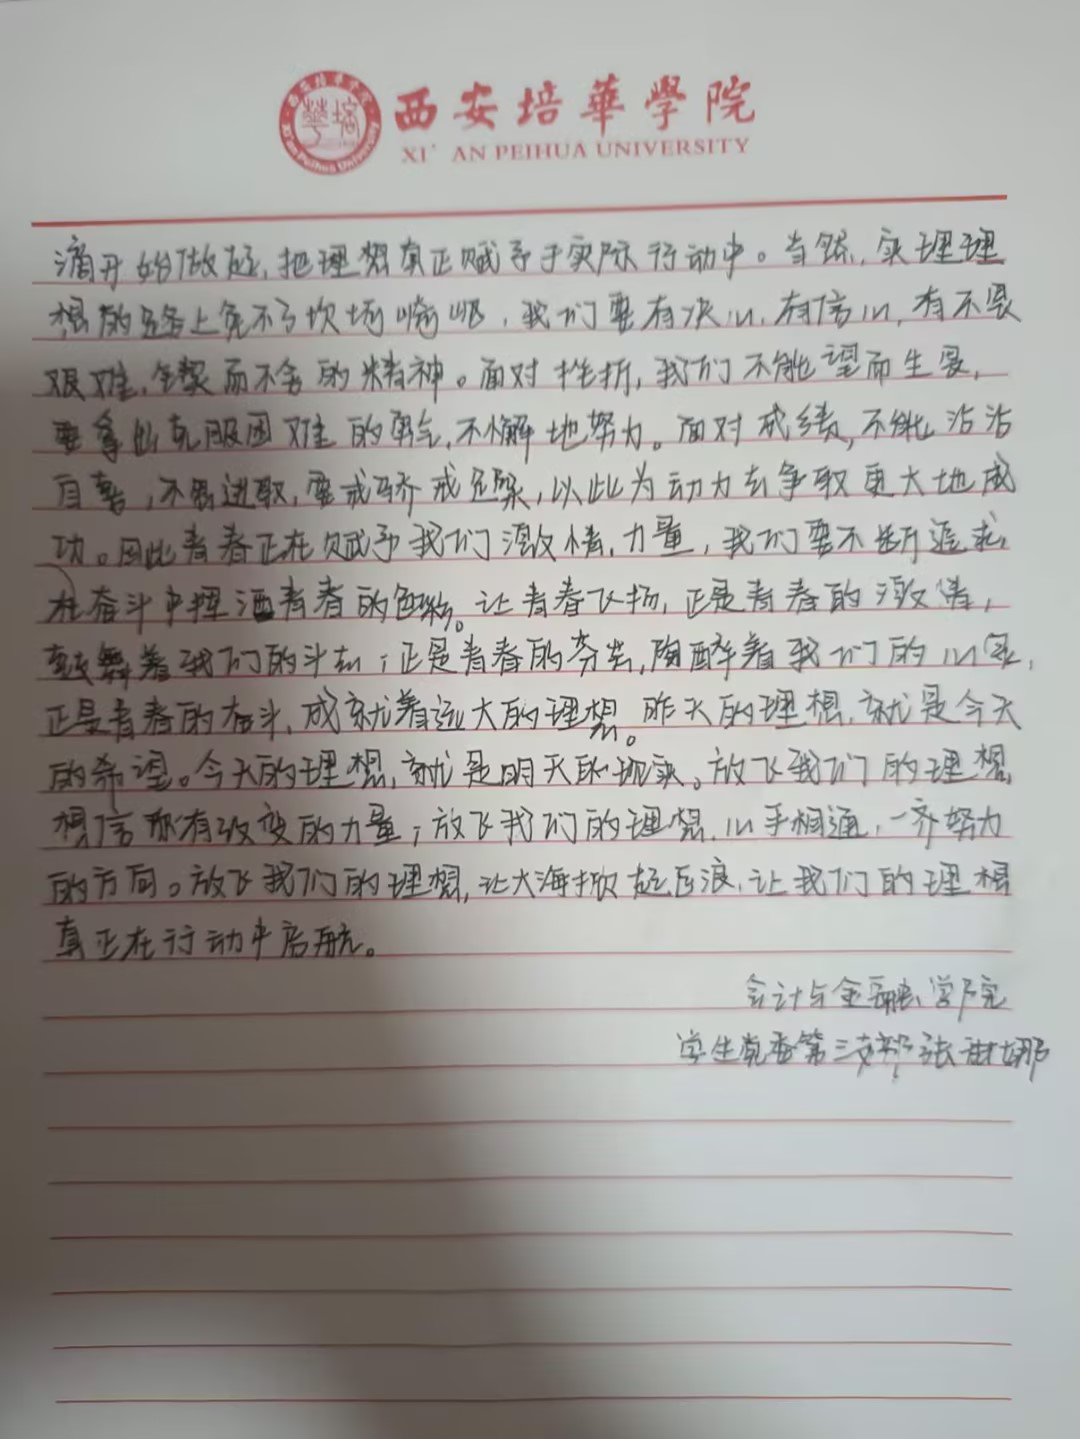 西安培華學院
XI'AN PEIHUA UNIVERSITY
滴开始做起,把理想真正赋予于实际行动中。当然,实理理
想的路上免不了坎坷崎岖,我们要有决心,有信心,有不畏
艰难,锲而不舍的精神。面对挫折,我们不能望而生畏,
要拿出克服困难的勇气,不懈地努力。面对成绩,不能沾沾
自喜,不思进取,要戒骄戒躁,以此为动力去争取更大地成
功。因此青春正在赋予我们激情,力量,我们要不断追求,
在奋斗中挥洒青春的色彩。让青春飞扬,正是青春的激情,
鼓舞着我们的斗志;正是青春的芬芳,陶醉着我们的心灵,
正是青春的奋斗,成就着远大的理想。昨天的理想,就是今天
的希望。今天的理想,就是明天的现实。放飞我们的理想,
想信你有改变的力量;放飞我们的理想,心手相通,一齐努力
的方向。放飞我们的理想,让大海掀起巨浪,让我们的理想
真正在行动中启航。
会计与金融学院
学生党委第三支部 张甜娜